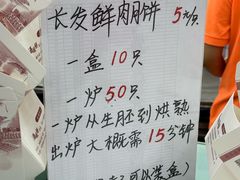 长发鲜肉月饼 5元/只
一盒10只
一炉50只
一炉从生胚到烘熟
出炉大概需15分钟
可以装盒)